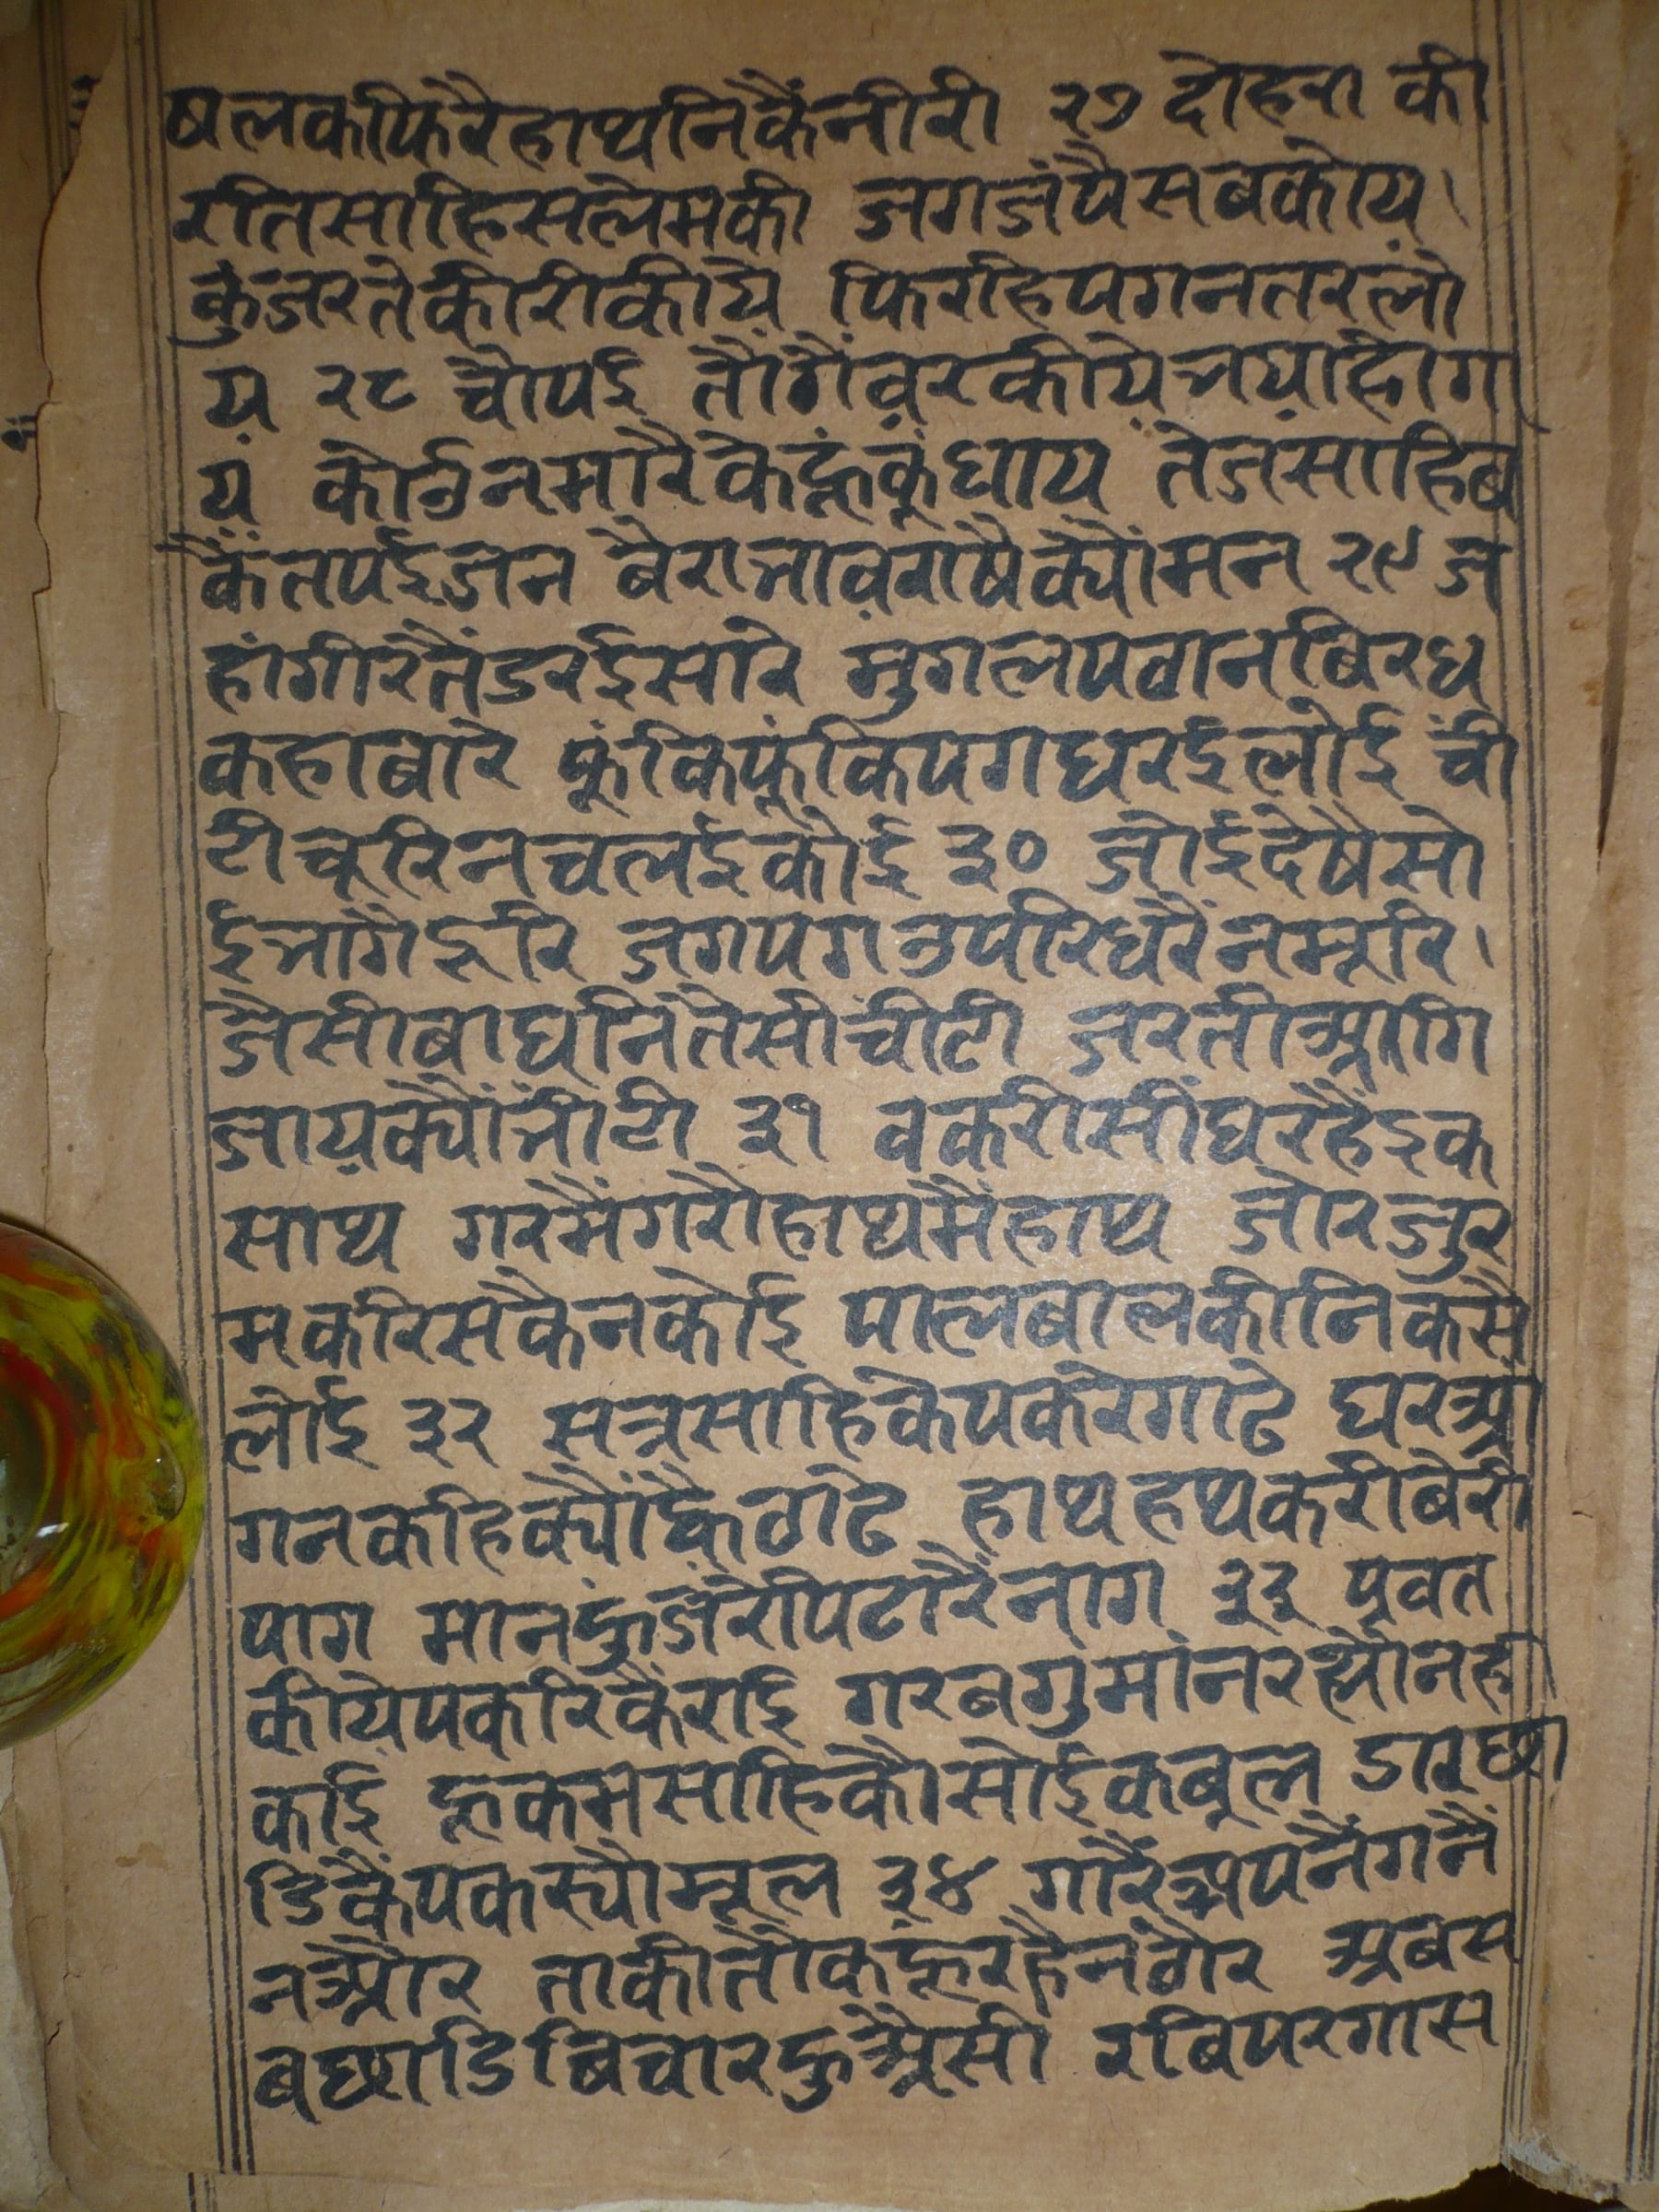 षलकफिरैहाथनिकैनीरी २७ दोहरा की
रतिसाहिसलेमकी जगजंपैसबकोय।
कुंजरतेकीरीकीये फिरहिपगनतरलो
य २८ चौपई तौगैंवरकीयेनयाहीग
य कोऊनमारैकेहूंकूंघाय तेजसाहिब
कैंतपईजन बैरानावराषैक्यौंमन २९ ज
हांगीरतैंडरईसारे मुगलपठानबिरध
कहाबारे फूंकिफूंकिपगधरईलोई ची
टीचूरिनचलईकोई ३० जोईदेषैसो
ईनागैदूरि जगपगऊपरिधरैंनमूरि।
जैसीबाघनितैसीचीटी जरतीआगि
जायक्यौंनीटी ३१ बकरीसींघरहैंइक
साथ गरमैंगरौहाथमैंहाथ जोरजुर
मकरिसकैनकोई पालबालकीनिकसै
लोई ३२ सत्रसाहिकेपकरेगाढे घरआं
गनकहिक्यौंह्वैठाढे हाथहथकरीबेरी
पाग मानहुंजरीपिटारैंनाग ३३ प्रवत
कीयेपकरिकैंराई गरबगुमांनरह्यौनही
काई हूकमसाहिकौसोईकबूल डारछा
डिकैंपकस्यौमूल ३४ गारैंअपनैंगनैं
नऔर ताकीतौकहूंरहैनठौर अबस
बछाडिबिचारहुऔसी रबिपरगास